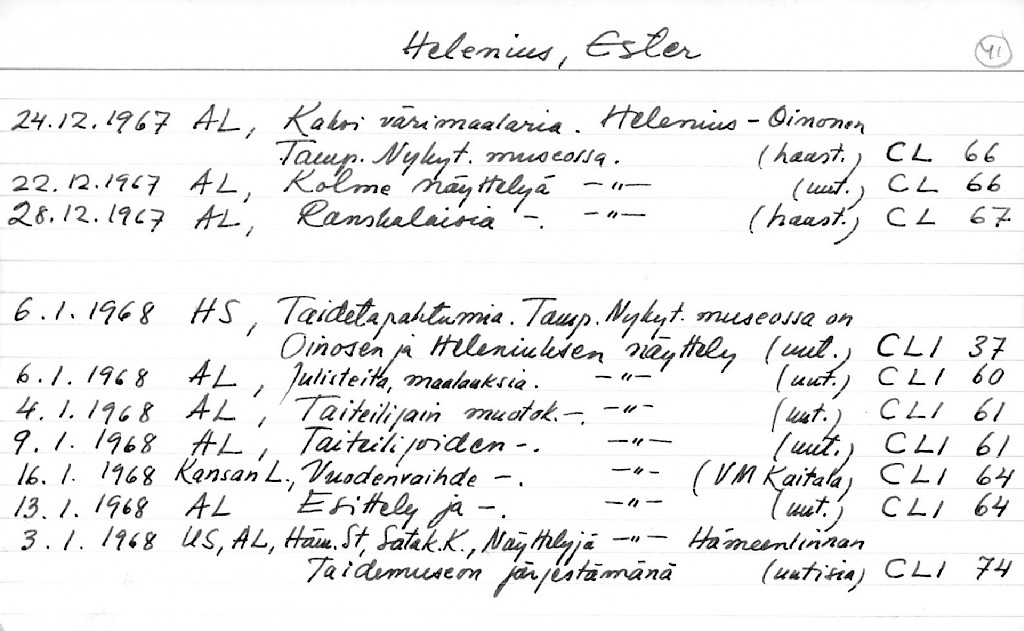 Helenius, Ester
41
24.12.1967 AL, Kaksi värimaalaria. Helenius - Oinonen
Tamp. Nykyt. museossa. (haast.) CL 66
22.12.1967 AL, Kolme näyttelyä -"- (uut.) CL 66
28.12.1967 AL, Ranskalaisia -. -"- (haast.) CL 67
6.1.1968 HS, Taidetapahtumia. Tamp. Nykyt. museossa on
Oinosen ja Heleniuksen näyttely (uut.) CLI 37
6.1.1968 AL, Julisteita, maalauksia. -"- (uut.) CLI 60
4.1.1968 AL, Taiteilijain muotok.-. -"- (uut.) CLI 61
9.1.1968 AL, Taiteilijoiden -. -"- (uut.) CLI 61
16.1.1968 Kansan L., Vuodenvaihde -. -"- (VM Kaitala) CLI 64
13.1.1968 AL Esittely ja -. -"- (uut.) CLI 64
3.1.1968 US, AL, Häm. St, Satak.K., Näyttelyjä -"- Hämeenlinnan
Taidemuseon järjestämänä (uutisia) CLI 74